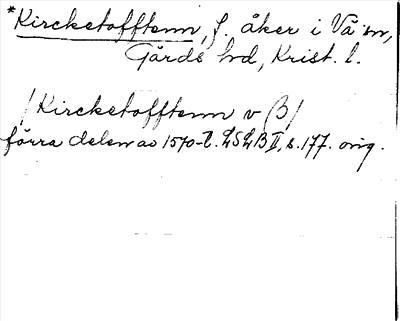 *Kircketofftenn, f. åker i Vä sn,
Gärds hd, Krist. l.
/Kircketofftenn v (B)/
förra delen av 1570-t. LSLB II, s. 177. orig.